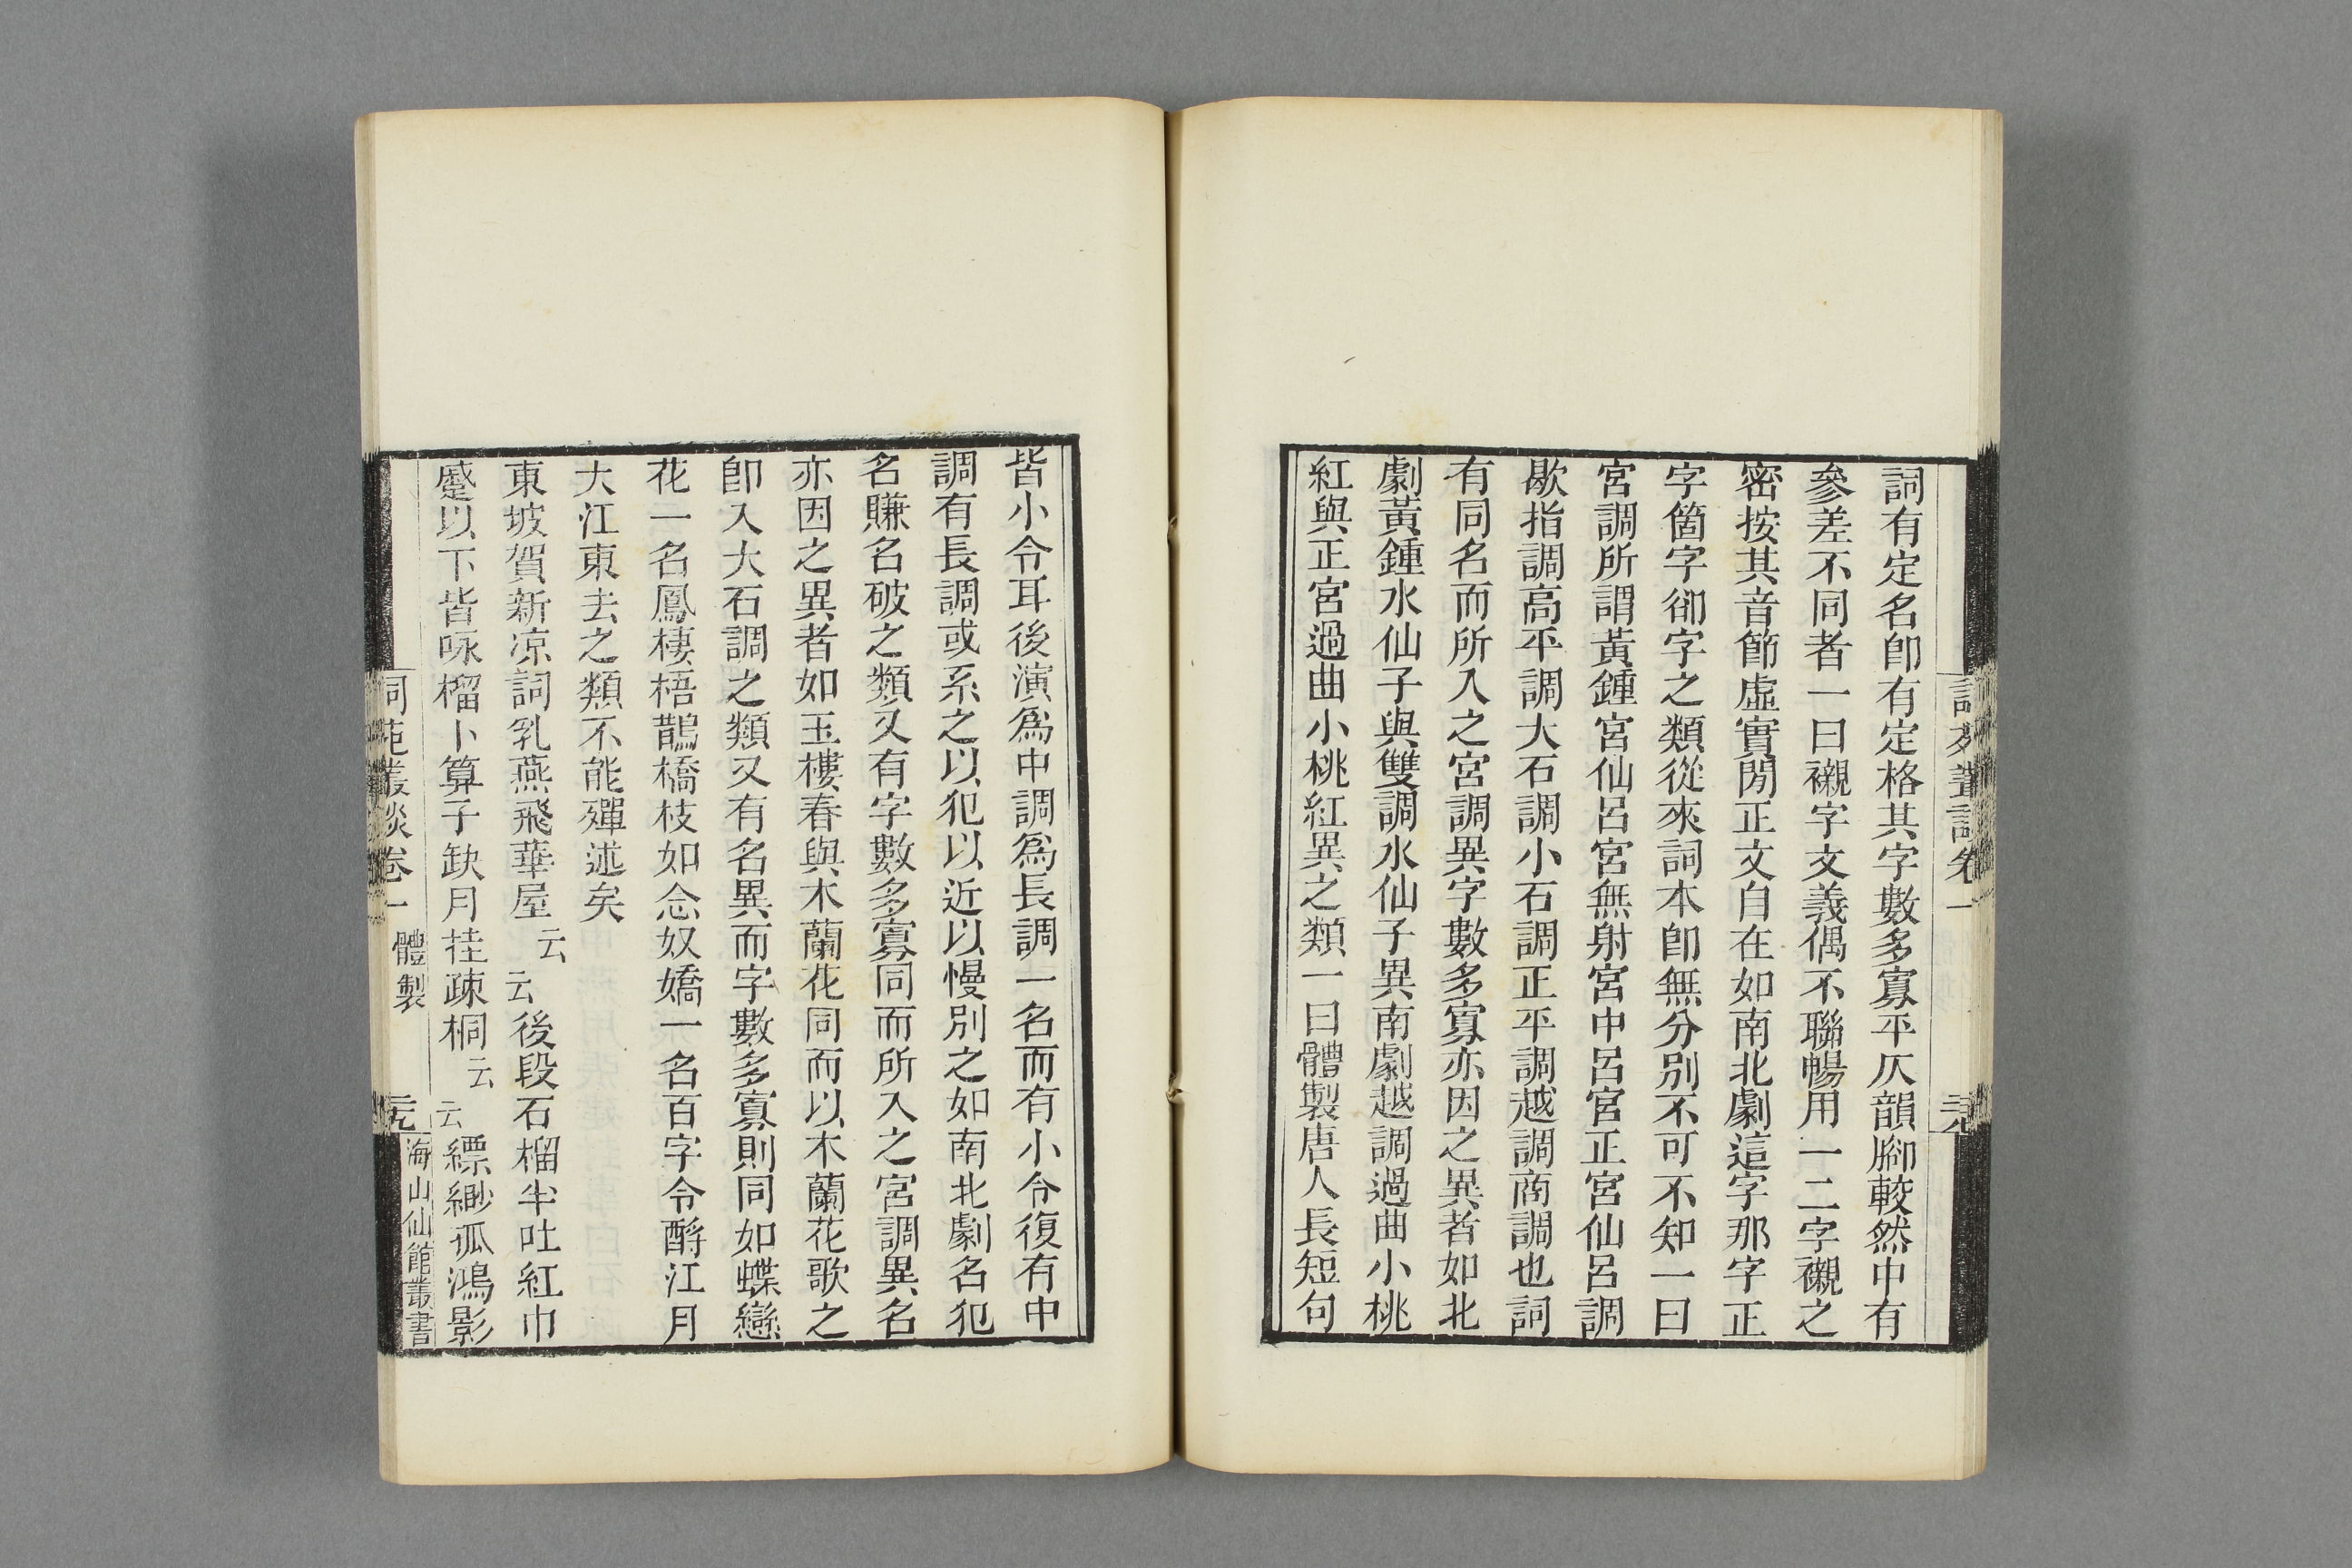 詞有定名卽有定格其字數多寡平仄韻腳較然中有
參差不同者一曰襯字文義偶不聯暢用一二字襯之
密按其音節虛實閒正文自在如南北劇這字那字正
字箇字卻字之類從來詞本卽無分別不可不知一曰
宮調所謂黃鍾宮仙呂宮無射宮中呂宮正宮仙呂調
歇指調高平調大石調小石調正平調越調商調也詞
有同名而所入之宮調異字數多寡亦因之異者如北
劇黃鍾水仙子與雙調水仙子異南劇越調過曲小桃
紅與正宮過曲小桃紅異之類一曰體製唐人長短句
皆小令耳後演為中調為長調一名而有小令復有中
調有長調或系之以犯以近以慢別之如南北劇名犯
名賺名破之類又有字數多寡同而所入之宮調異名
亦因之異者如玉樓春與木蘭花同而以木蘭花歌之
卽入大石調之類又有名異而字數多寡則同如蝶戀
花一名鳳棲梧鵲橋枝如念奴嬌一名百字令酹江月
大江東去之類不能殫述矣
東坡賀新凉詞乳燕飛華屋云云後段石榴半吐紅巾
蹙以下皆咏榴卜算子缺月挂疎桐云云縹緲孤鴻影
詞苑叢談卷一 體製
海山仙館叢書